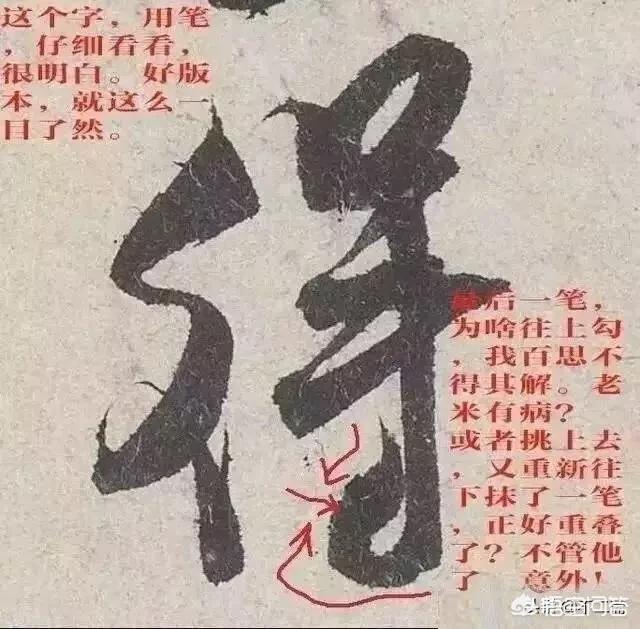 这个字，用笔
，仔细看看，
很明白。好版
本，就这么一
目了然。
得
最后一笔，
为啥往上勾
，我百思不
得其解。老
米有病？
或者挑上去
，又重新往
下抹了一笔
，正好重叠
了？不管他
了 意外！